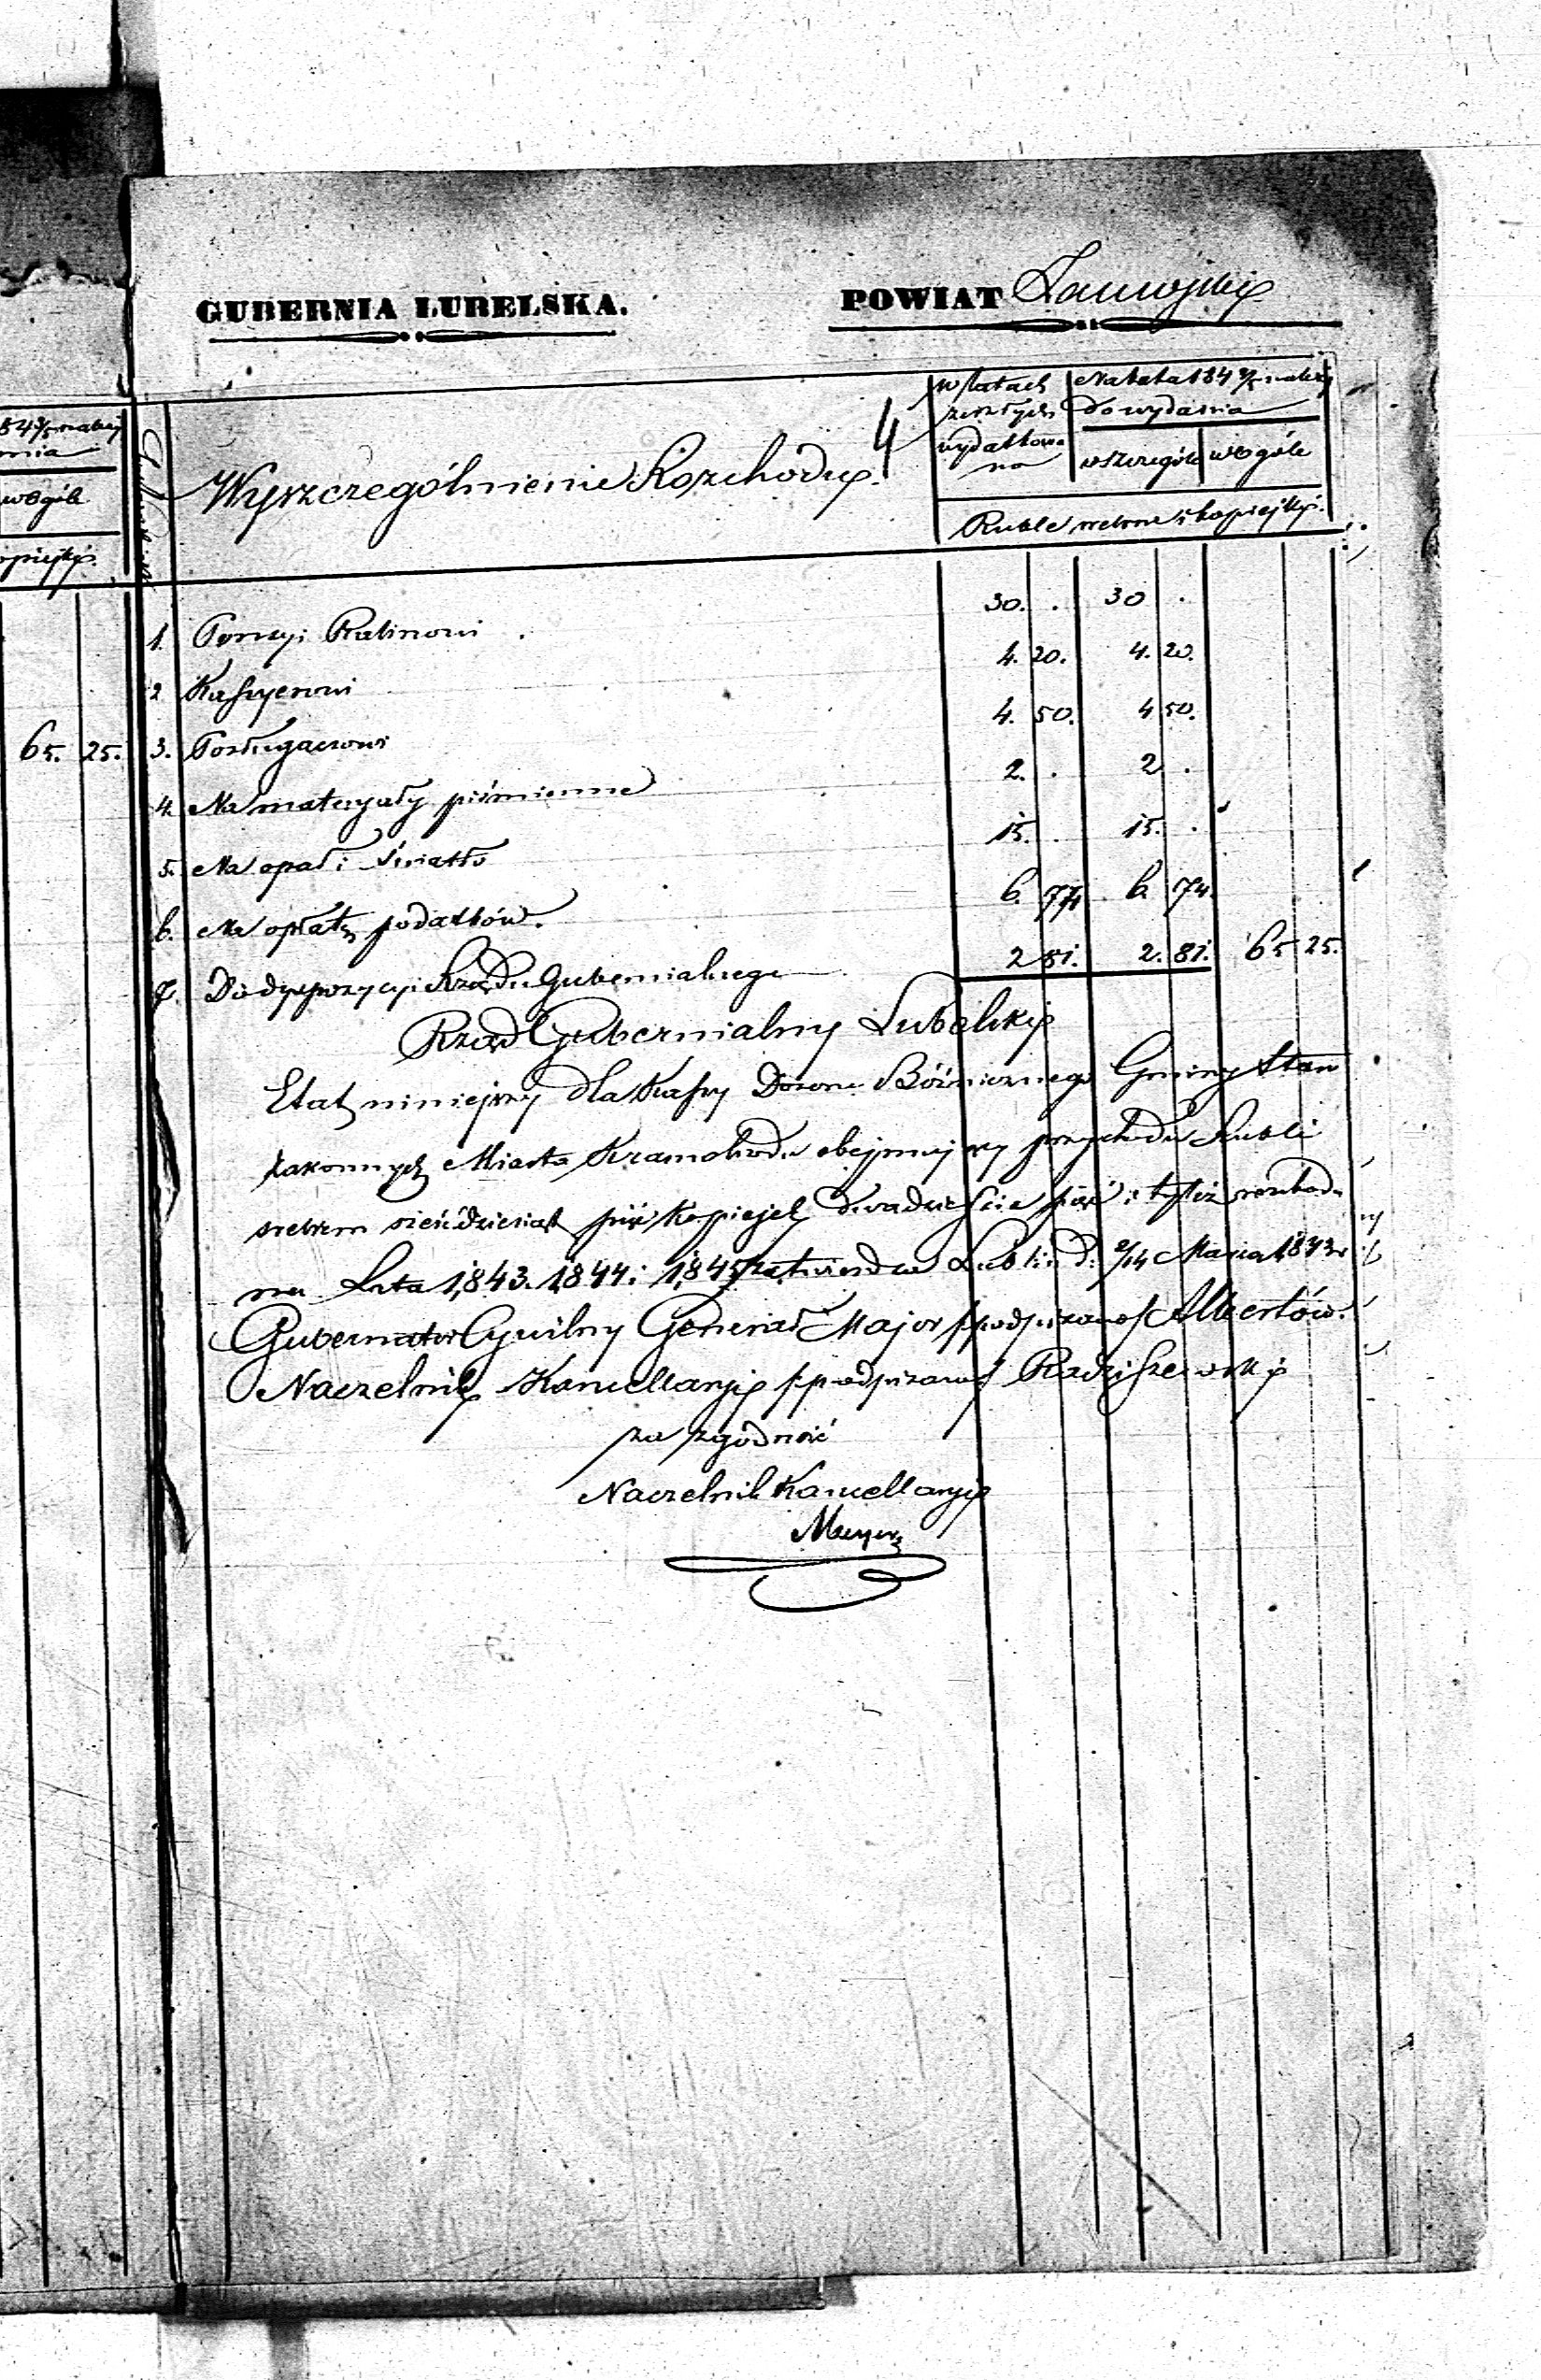 GUBERNIA LUBELSKA.
POWIAT Zamojski
4
Wyszczególnienie Rozchodu.
w latach zeszłych wydatkowano
Na lata 184 3/5 należy do wydania
w szczególe
w ogóle
Ruble srebrne i kopiejki.
1. Pensyi Rabinowi 30. . 30 .
2 Kassyerowi 4. 20. 4. 20.
3. Posługaczowi 4. 50. 4 50.
4. Na materyały piśmienne 2. . 2 .
5. Na opał i Światło 15. . 15. .
6. Na opłatę podatków. 6. 74 6. 74.
7. Do dyspozycyi Rządu Gubernialnego 2 81. 2. 81. 65 25.
Rząd Gubernialny Lubelski
Etat niniejszy dla Kassy Dozoru Bóźnicznego Gminy Staro
zakonnych Miasta Kramobrodu obejmujący przychodu Rubli
srebrem sześćdziesiąt pięć Kopiejek dwadzieścia pięć i tyleż rozchodu
na Lata 1,843. 1,844 i 1,845 zatwierdza Lublin d: 2/14 Marca 1843 r
Gubernator Cywilny Generał Major /podpisano/ Albertów.
Naczelnik Kancellaryi /podpisano/ Radziszewski
za zgodność
Naczelnik Kancellaryi
Meyer
należy
w ogóle
65. 25.